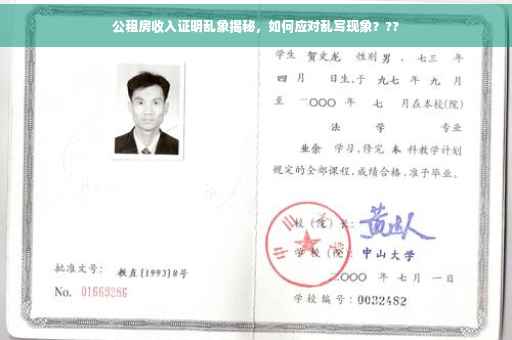 公租房收入证明乱象揭秘，如何应对乱写现象？??
学生 贺文龙 性别 男，七三 年
四 月 日生,于 九七 年 九 月
至 二〇〇〇 年 七 月在本校(院)
法 学 专业
业余 学习,修完 本 科教学计划
规定的全部课程,成绩合格,准予毕业。
校 (院) 长:
学 校 (院): 中山大学
二〇〇〇 年 七 月 一 日
批准文号: 教直(1993)8号
No. 01669286
学校编号: 0032482